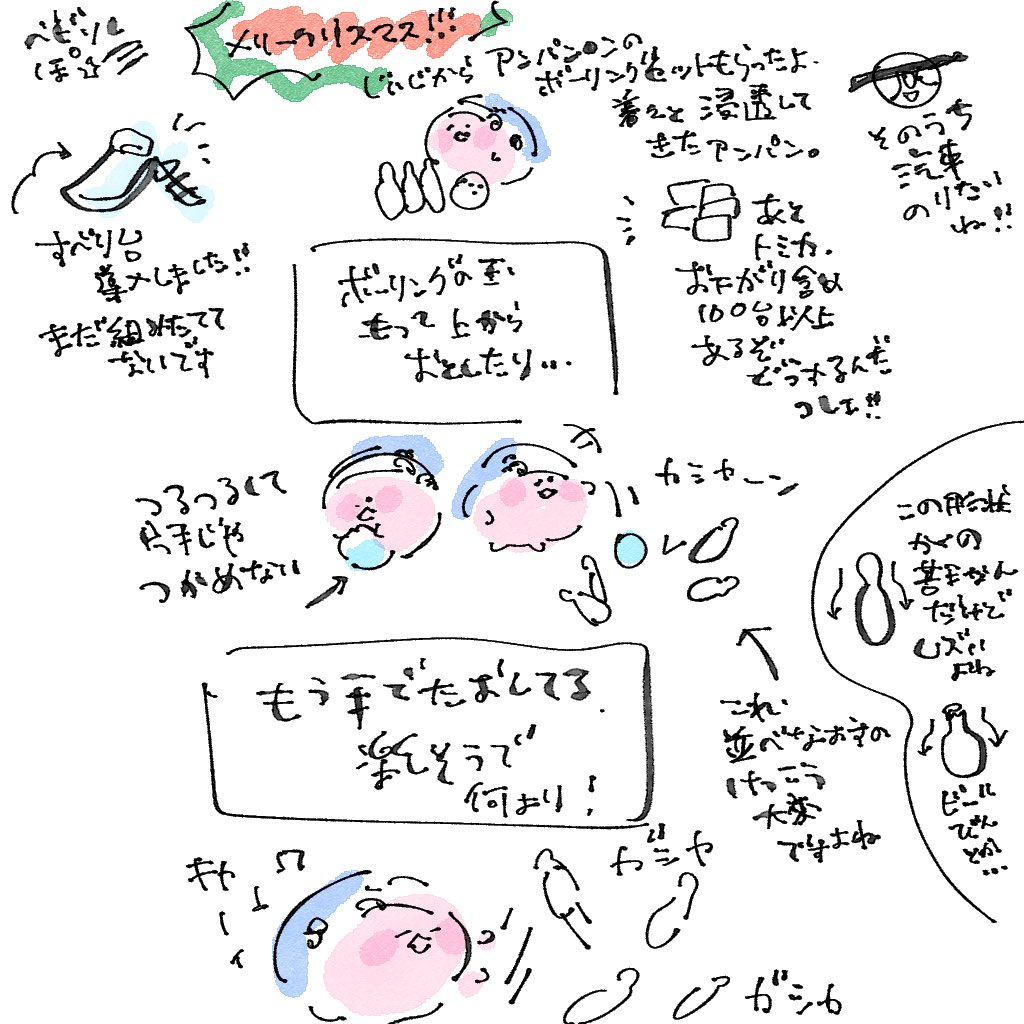 メリークリスマス!!!
じぃじから
アンパン●ンの
ボーリングセットもらったよ.
着々と浸透して
きたアンパン。
そのうち
汽車
のりたい
ね!!
すべり台
導入しました!!
まだ組みたてて
ないです
あと
トミカ.
おさがり含め
100台以上
あるぞ
どうするんだ
コレ!!
ボーリングの玉
もって上から
おとしたり...
つるつるしてて
片手じゃ
つかめない
ガシャーン
この形状
かくの
苦手なん
だけど
ムズい
よね
ビール
びん
とか...
もう手でたおしてる.
楽しそうで
何より!
これ
並べなおすの
けっこう
大変
ですよね
キャーイ
ガシャ
ガシャ